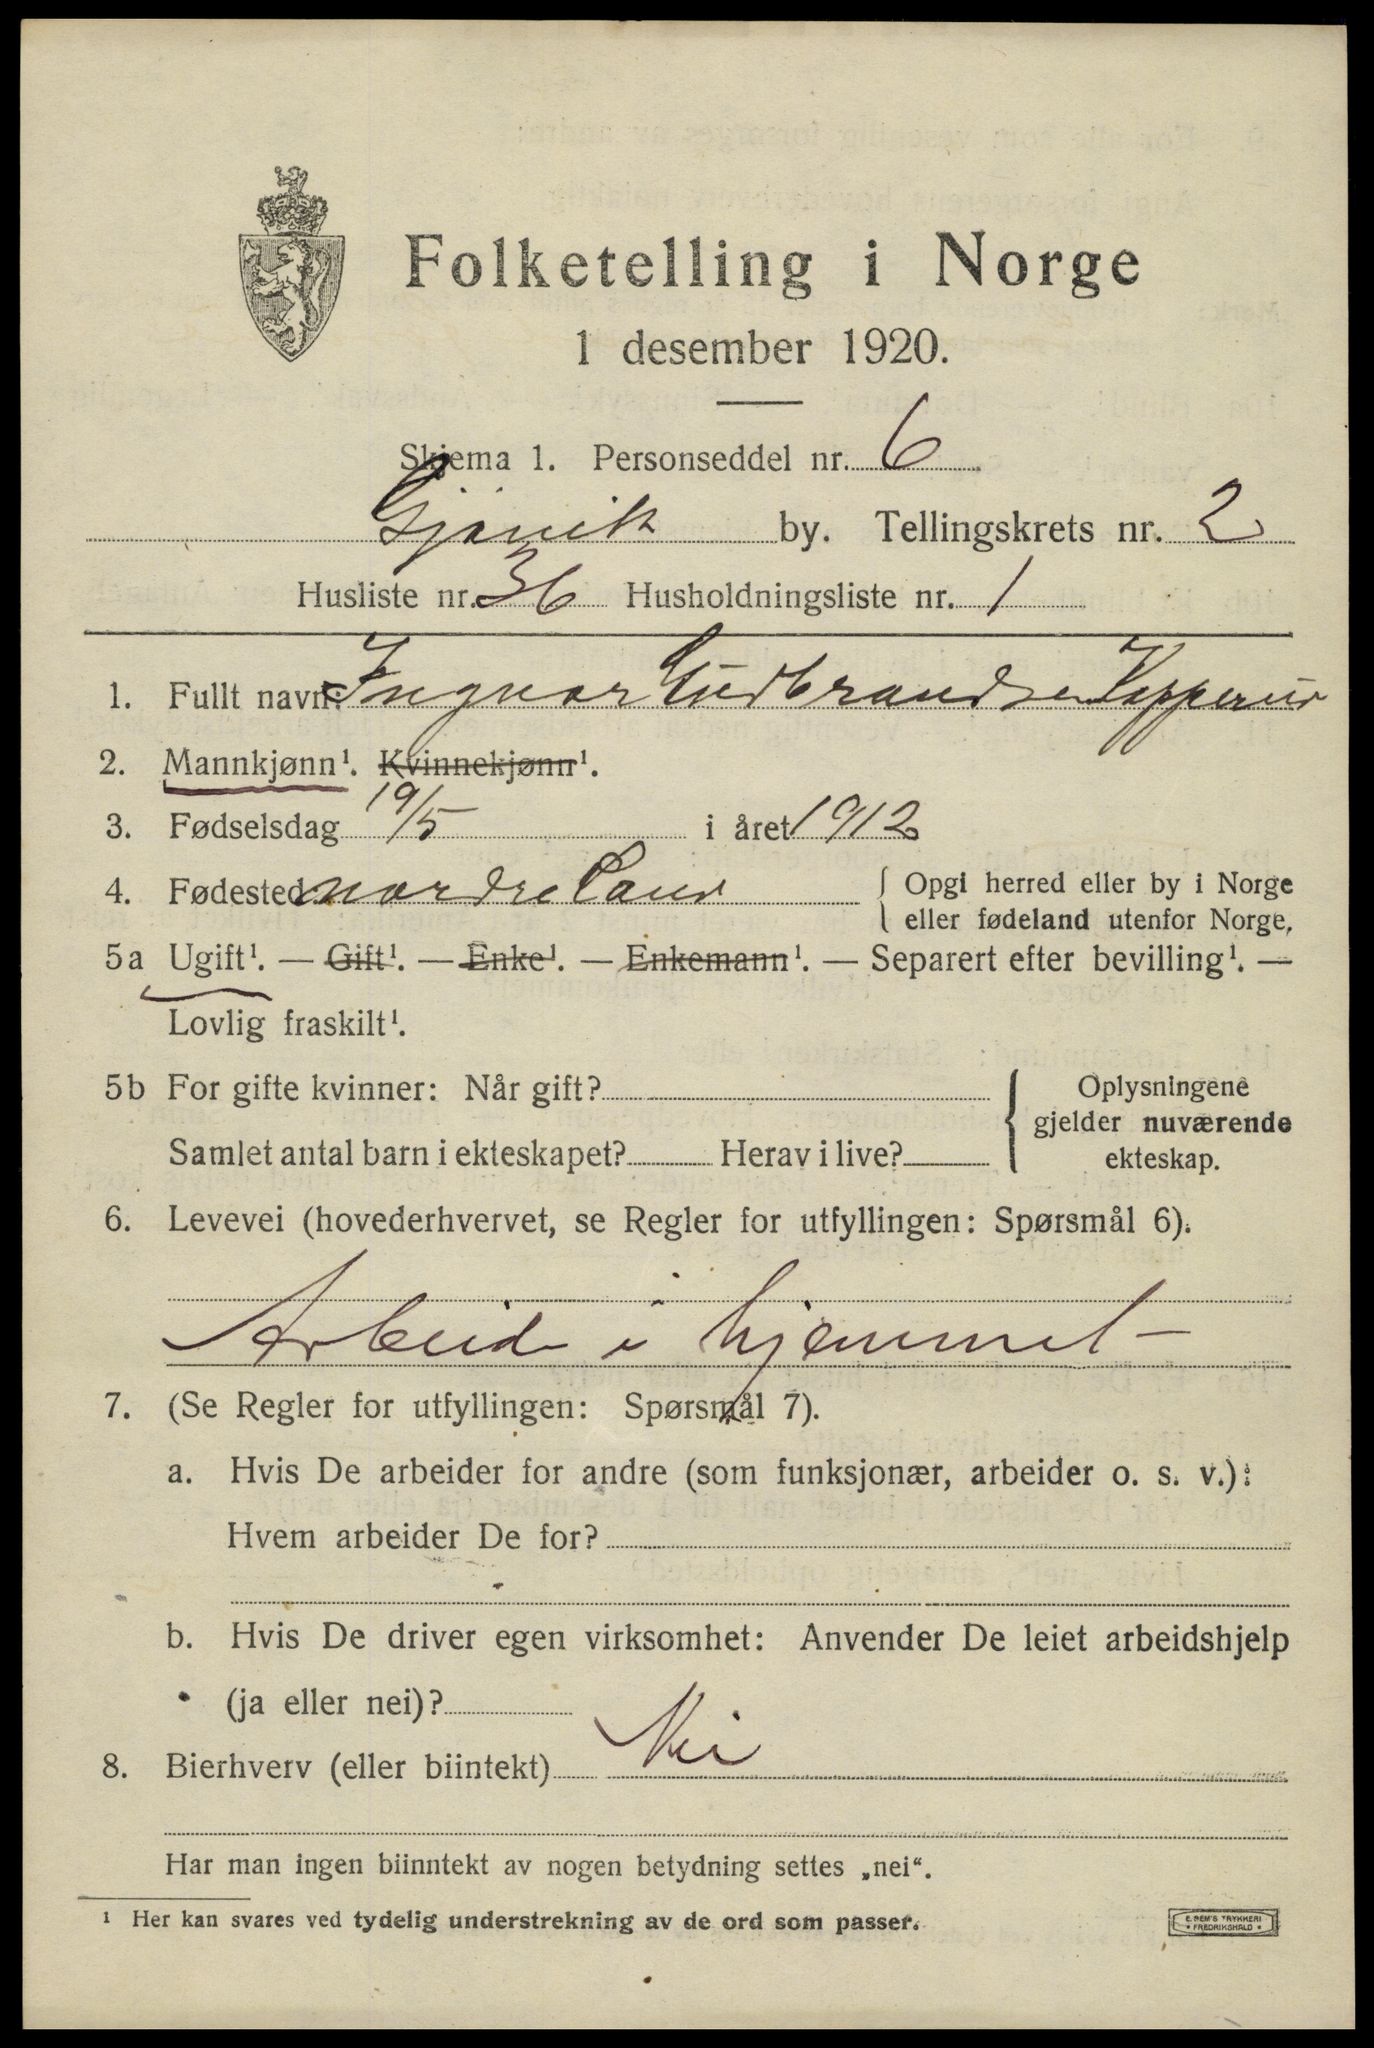 Folketelling i Norge
1 desember 1920.
Skjema 1. Personseddel nr. 6
Gjøvik by. Tellingskrets nr. 2
Husliste nr. 36 Husholdningsliste nr. 1
1. Fullt navn: Ingvar Gudbrandsen Kopperud
2. Mannkjønn¹. Kvinnekjønn¹.
3. Fødselsdag 19/5 i året 1912
4. Fødested nordre Land { Opgi herred eller by i Norge
eller fødeland utenfor Norge.
5a Ugift¹. — Gift¹. — Enke¹. — Enkemann¹. — Separert efter bevilling¹. —
Lovlig fraskilt¹.
5b For gifte kvinner: Når gift? { Oplysningene
gjelder nuværende
Samlet antal barn i ekteskapet? Herav i live? ekteskap.
6. Levevei (hovederhvervet, se Regler for utfyllingen: Spørsmål 6).
Arbeide i hjemmet
7. (Se Regler for utfyllingen: Spørsmål 7).
a. Hvis De arbeider for andre (som funksjonær, arbeider o. s. v.):
Hvem arbeider De for?
b. Hvis De driver egen virksomhet: Anvender De leiet arbeidshjelp
(ja eller nei)?
8. Bierhverv (eller biintekt) Nei
Har man ingen biinntekt av nogen betydning settes „nei“.
¹ Her kan svares ved tydelig understrekning av de ord som passer.
E. SEM'S TRYKKERI
* FREDRIKSHALD *